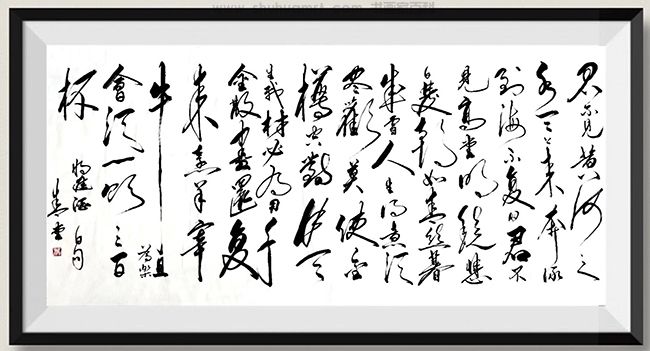 君不见黄河之
水天上来奔流
到海不复回君不
見高堂明镜悲
白髮朝如青丝暮
成雪人生得意须
尽歡莫使金
樽空對月天
生我材必有用千
金散尽還复
来烹羊宰
牛且为樂
會须一饮三百
杯
将进酒句